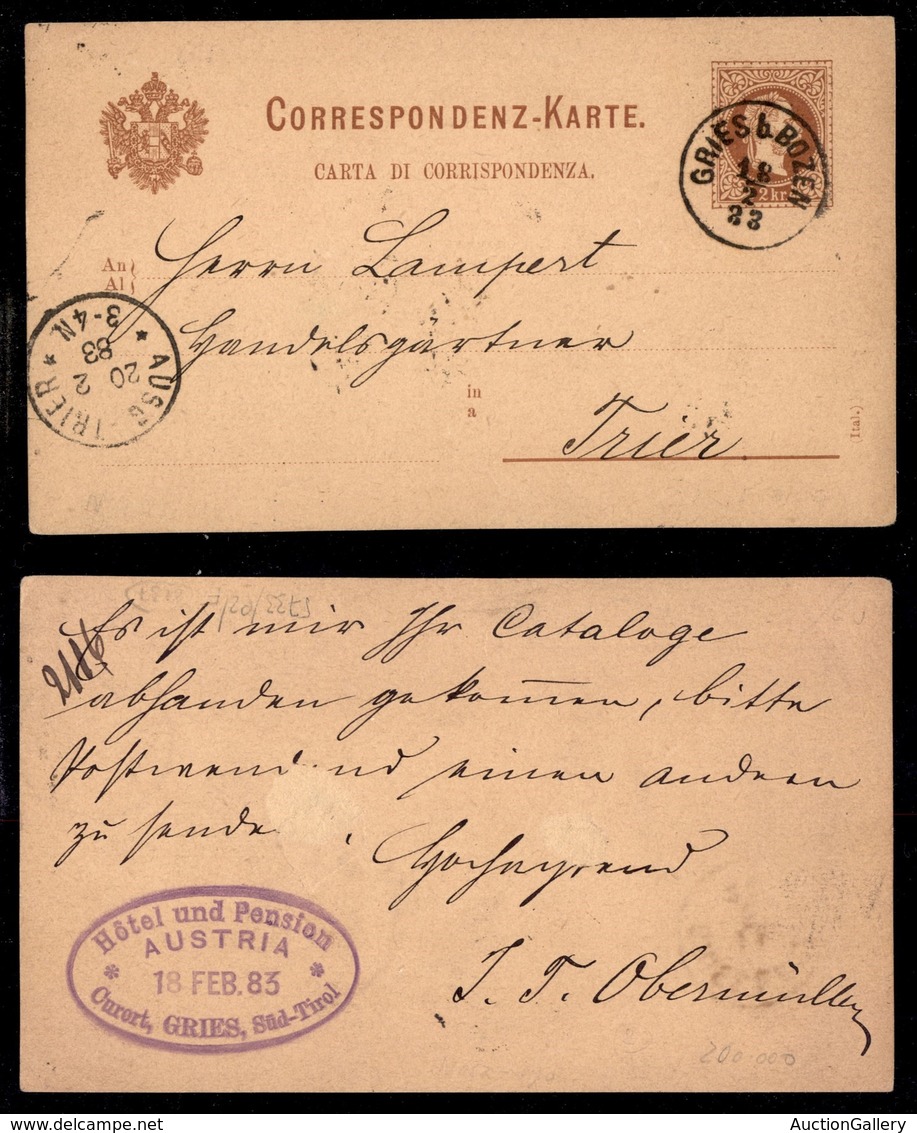 CORRESPONDENZ-KARTE.
CARTA DI CORRISPONDENZA.
GRIES b. BOZEN
18
2
83
2 kr.
An
Al
Herrn Lampert
Handelsgärtner
in
a
Trier.
(Ital.)
AUSG TRIER
20 2
83
3-4N
Es ist mir Ihr Cataloge
abhanden gekom̄en, bitte
Postwend nd einen andern
zu sende .
Hocha
J. T. Obermüller
Hôtel und Pension
AUSTRIA
18 FEB. 83
Curort, GRIES, Süd-Tirol
200.000
AuctionGallery